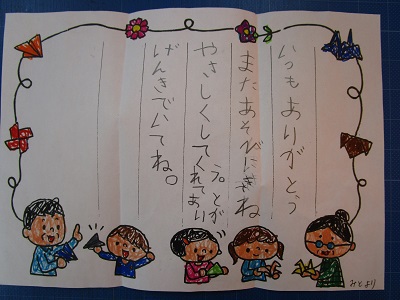 いつもありがとう
またあそびにきね
やさしくしてくれてあり
がとう。
げんきでいてね。
みとより